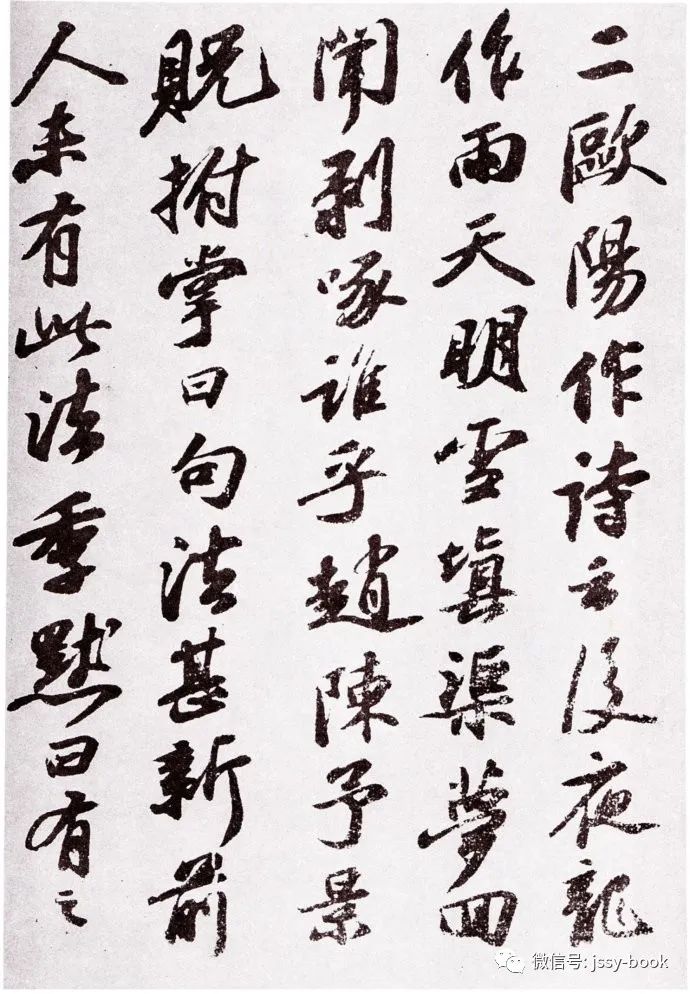 二歐陽作詩云後夜龍
作雨天明雪填渠夢回
聞剥啄誰乎趙陳予景
貺拊掌曰句法甚新前
人未有此法季默曰有之
微信号: jssy-book